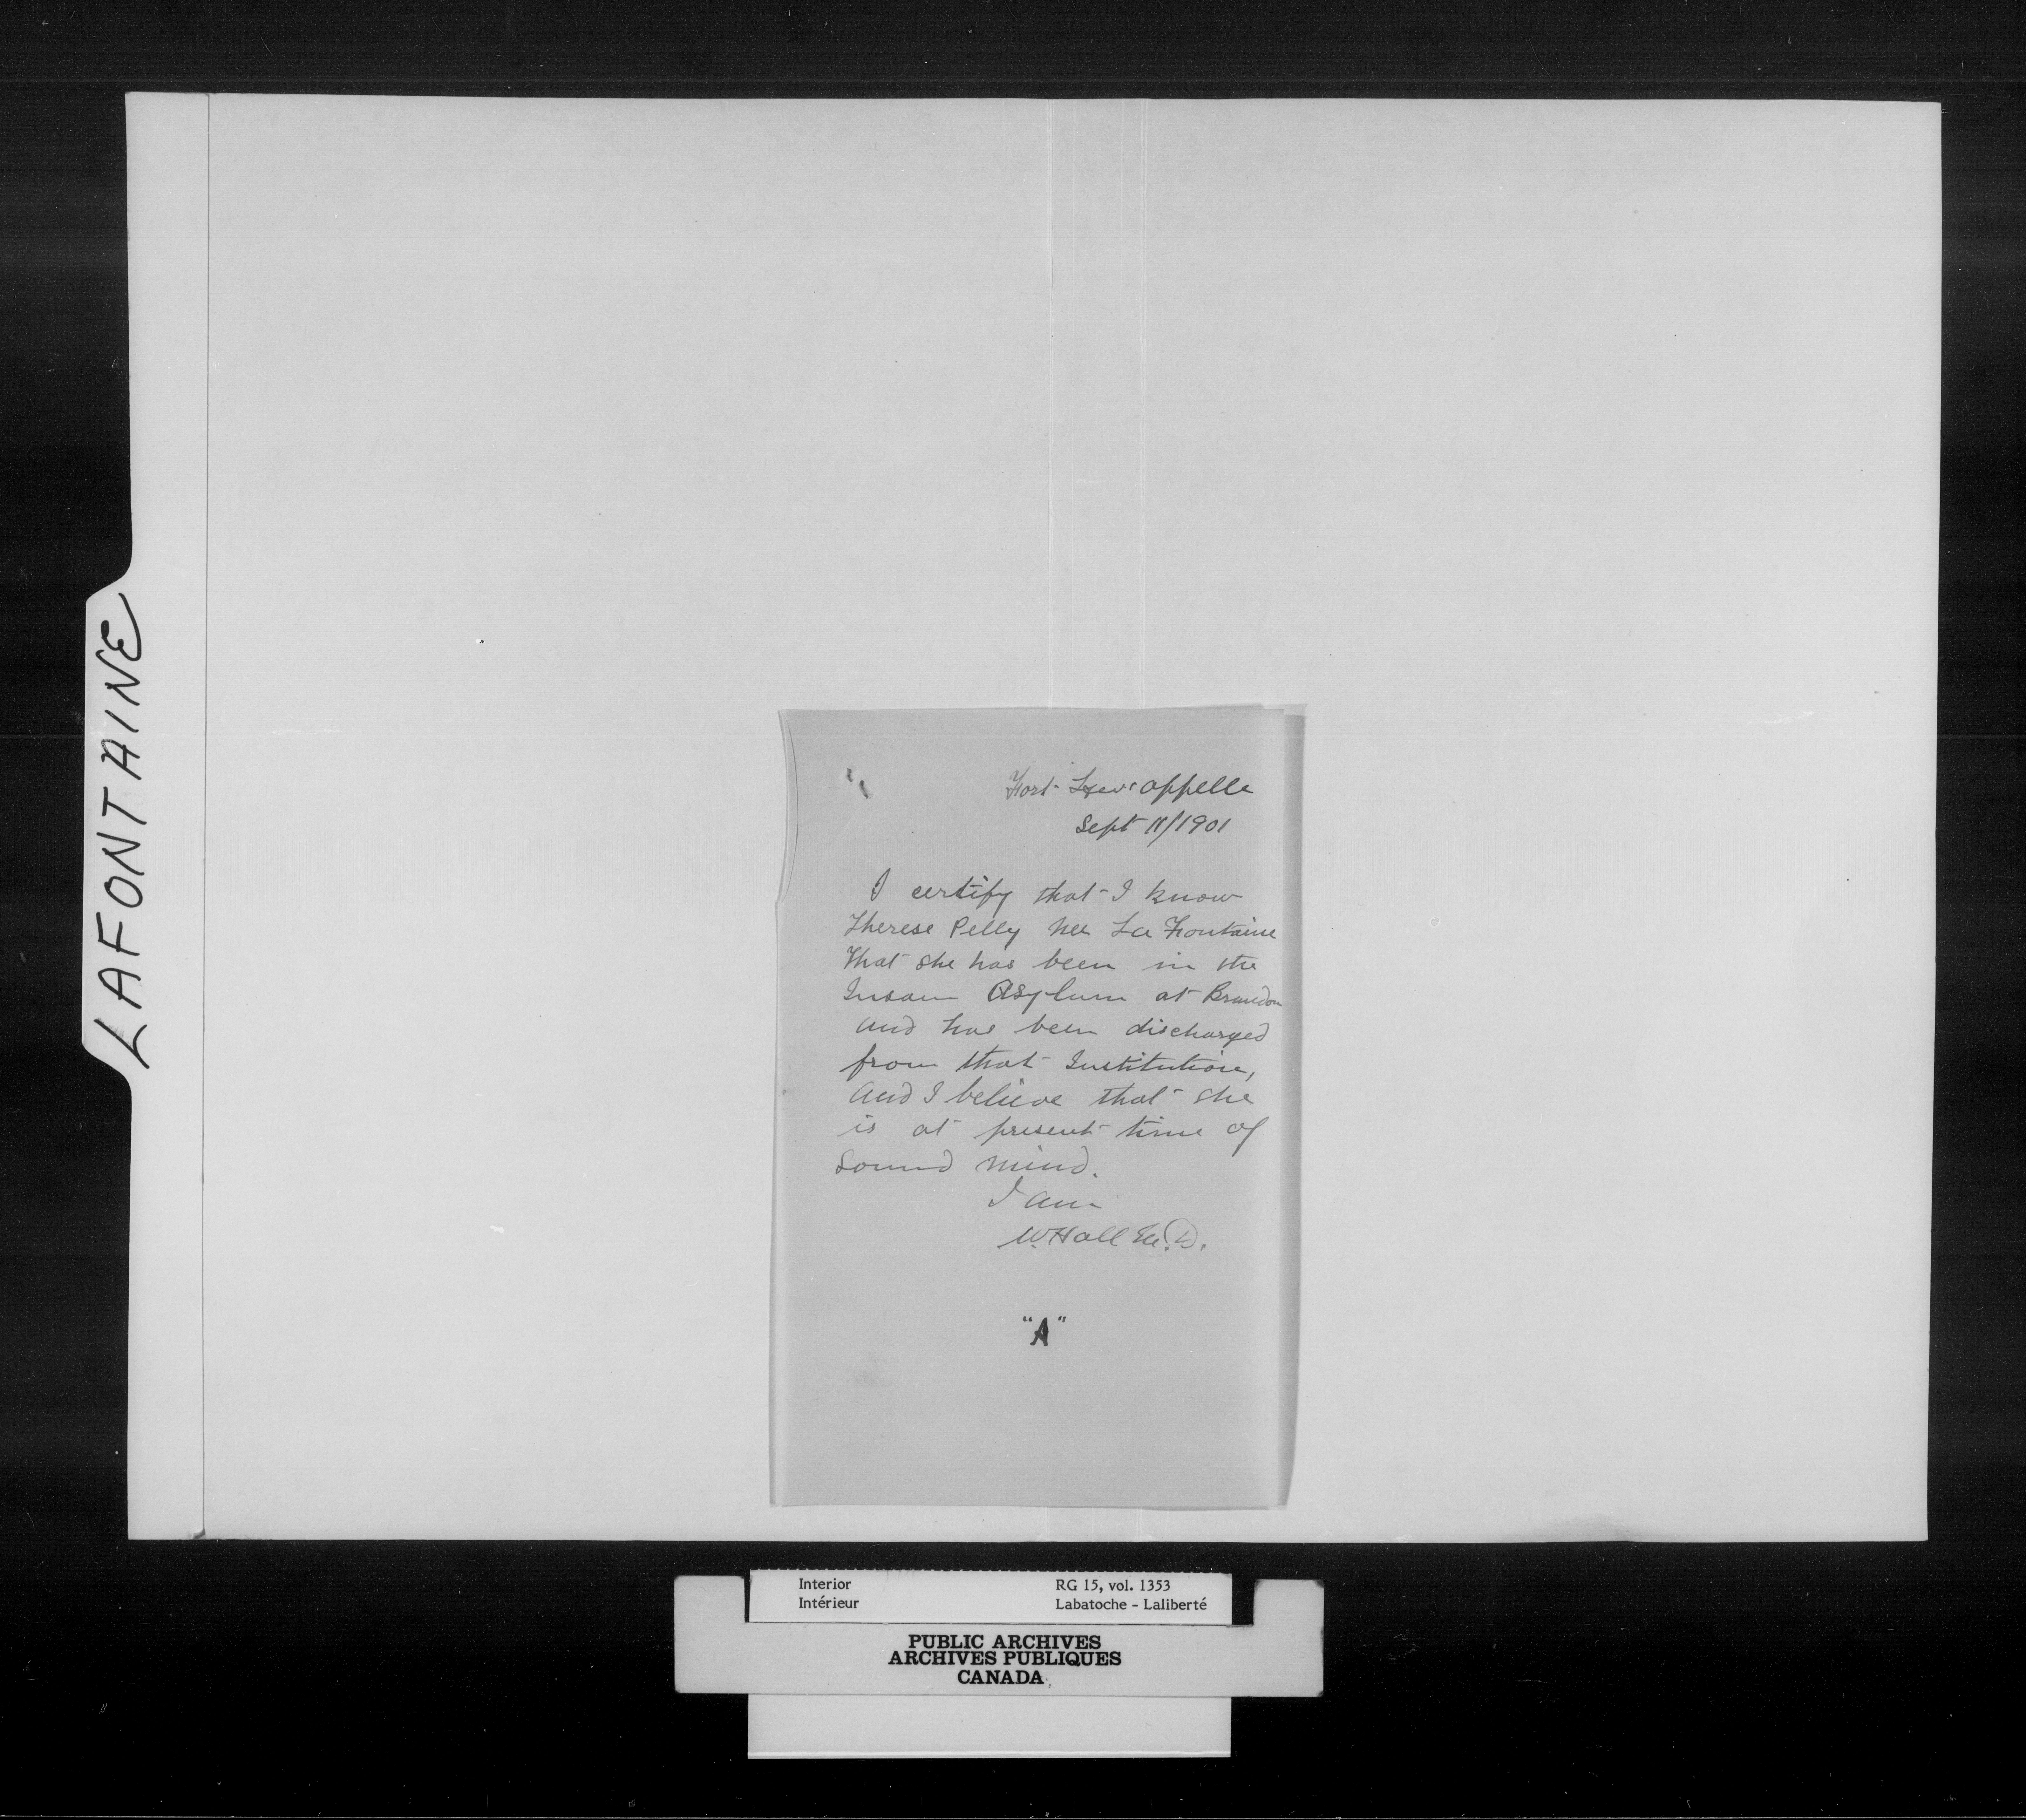 LAFONTAINE
Fort Qu'appelle
Sept 11/1901
I certify that I know
Therese Pelly nee La Fontaine
That she has been in the
Insane Asylum at Brandon
and has been discharged
from that Institution,
and I believe that she
is at present time of
sound mind.
I am
W. Hall M.D.
"A"
Interior
Intérieur
RG 15, vol. 1353
Labatoche - Laliberté
PUBLIC ARCHIVES
ARCHIVES PUBLIQUES
CANADA